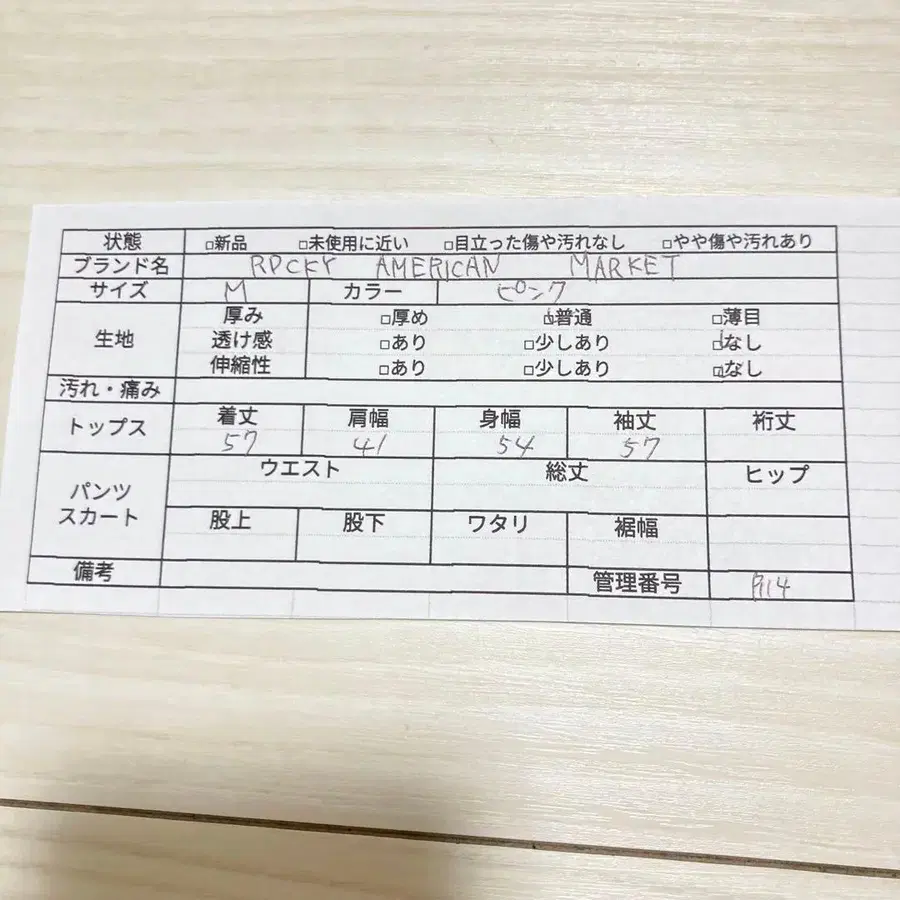 状態 □新品 □未使用に近い □目立った傷や汚れなし □やや傷や汚れあり
ブランド名 ROCKY AMERICAN MARKET
サイズ M カラー ピンク
生地 厚み □厚め □普通 □薄目
透け感 □あり □少しあり □なし
伸縮性 □あり □少しあり □なし
汚れ・痛み
トップス 着丈 肩幅 身幅 袖丈 裄丈
57 41 54 57
パンツ スカート ウエスト 総丈 ヒップ
股上 股下 ワタリ 裾幅
備考 管理番号